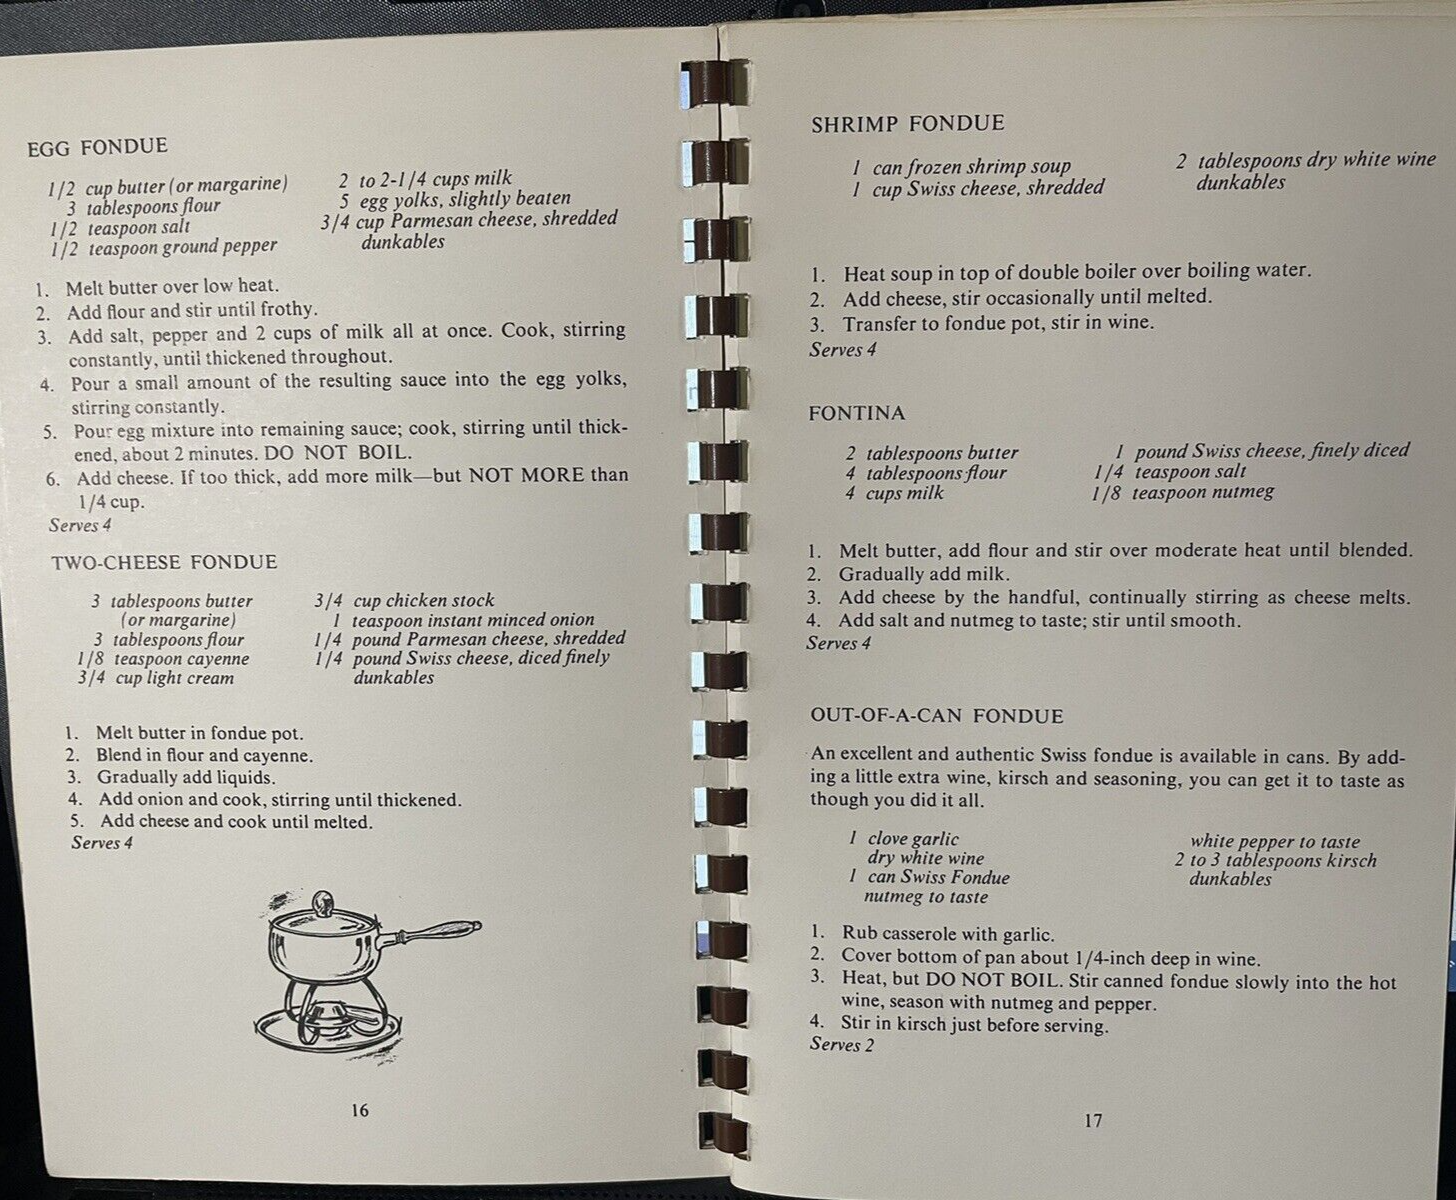 EGG FONDUE
1/2 cup butter (or margarine)
3 tablespoons flour
1/2 teaspoon salt
1/2 teaspoon ground pepper
2 to 2-1/4 cups milk
5 egg yolks, slightly beaten
3/4 cup Parmesan cheese, shredded
dunkables
1. Melt butter over low heat.
2. Add flour and stir until frothy.
3. Add salt, pepper and 2 cups of milk all at once. Cook, stirring
constantly, until thickened throughout.
4. Pour a small amount of the resulting sauce into the egg yolks,
stirring constantly.
5. Pour egg mixture into remaining sauce; cook, stirring until thick-
ened, about 2 minutes. DO NOT BOIL.
6. Add cheese. If too thick, add more milk—but NOT MORE than
1/4 cup.
Serves 4
TWO-CHEESE FONDUE
3 tablespoons butter
(or margarine)
3 tablespoons flour
1/8 teaspoon cayenne
3/4 cup light cream
3/4 cup chicken stock
1 teaspoon instant minced onion
1/4 pound Parmesan cheese, shredded
1/4 pound Swiss cheese, diced finely
dunkables
1. Melt butter in fondue pot.
2. Blend in flour and cayenne.
3. Gradually add liquids.
4. Add onion and cook, stirring until thickened.
5. Add cheese and cook until melted.
Serves 4
16
SHRIMP FONDUE
1 can frozen shrimp soup
1 cup Swiss cheese, shredded
2 tablespoons dry white wine
dunkables
1. Heat soup in top of double boiler over boiling water.
2. Add cheese, stir occasionally until melted.
3. Transfer to fondue pot, stir in wine.
Serves 4
FONTINA
2 tablespoons butter
4 tablespoons flour
4 cups milk
1 pound Swiss cheese, finely diced
1/4 teaspoon salt
1/8 teaspoon nutmeg
1. Melt butter, add flour and stir over moderate heat until blended.
2. Gradually add milk.
3. Add cheese by the handful, continually stirring as cheese melts.
4. Add salt and nutmeg to taste; stir until smooth.
Serves 4
OUT-OF-A-CAN FONDUE
An excellent and authentic Swiss fondue is available in cans. By add-
ing a little extra wine, kirsch and seasoning, you can get it to taste as
though you did it all.
1 clove garlic
dry white wine
1 can Swiss Fondue
nutmeg to taste
white pepper to taste
2 to 3 tablespoons kirsch
dunkables
1. Rub casserole with garlic.
2. Cover bottom of pan about 1/4-inch deep in wine.
3. Heat, but DO NOT BOIL. Stir canned fondue slowly into the hot
wine, season with nutmeg and pepper.
4. Stir in kirsch just before serving.
Serves 2
17